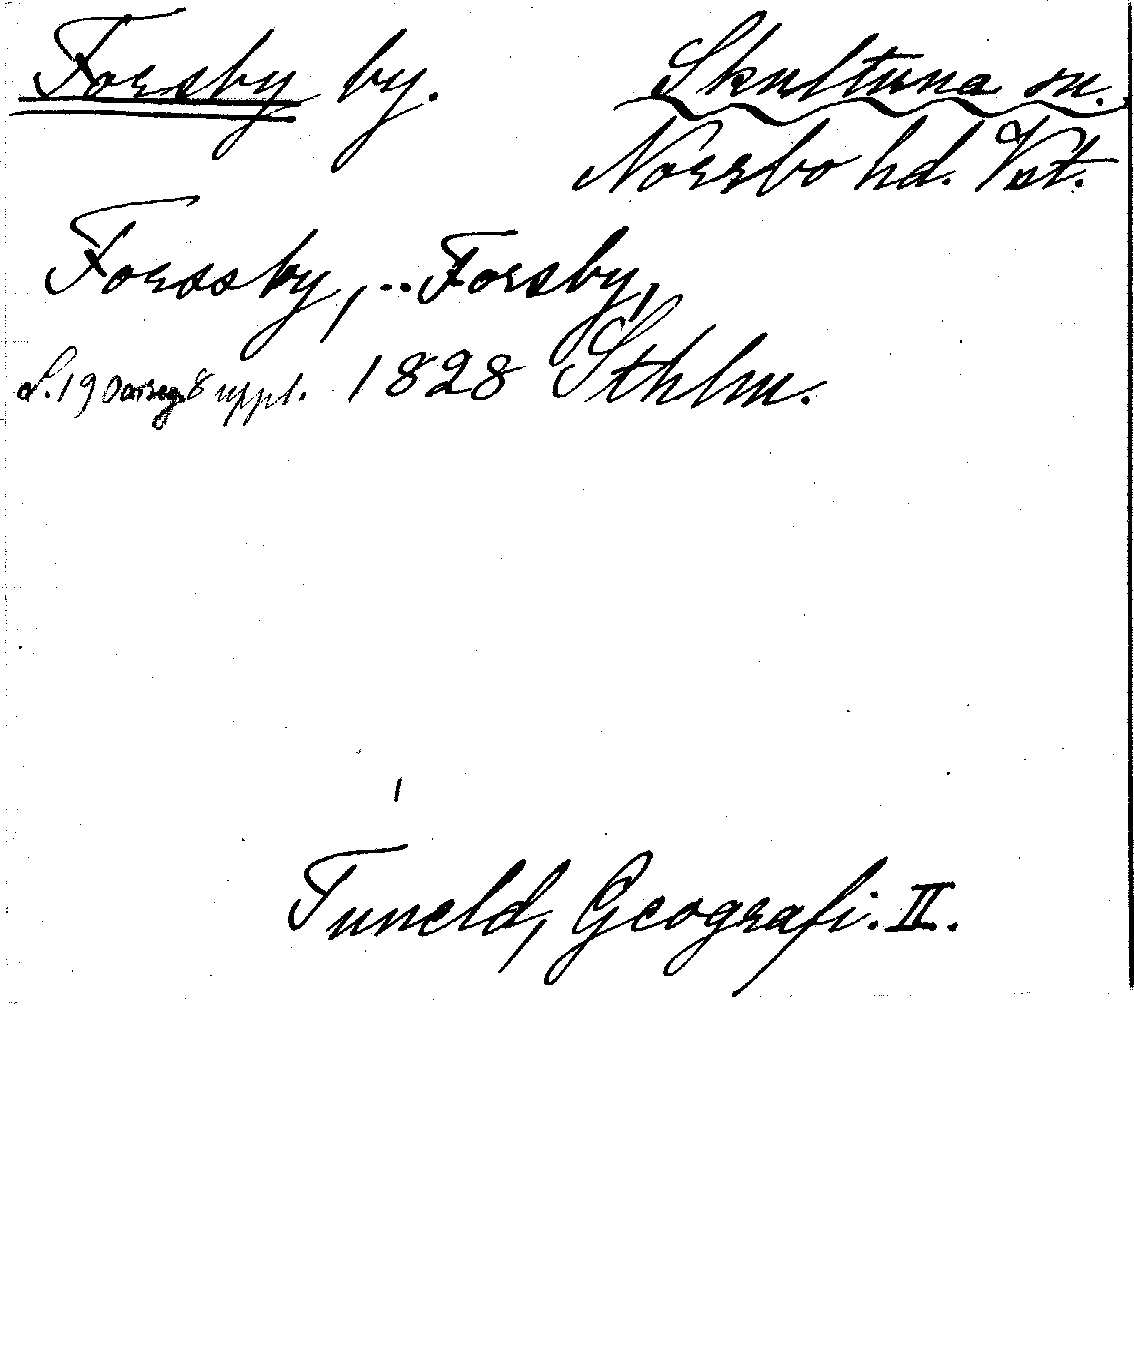 Forsby by. Skultuna sn.
Norrbo hd. Vst.
Forssby, .. Forsby,
s. 190 8 uppl. 1828 Sthlm.
Tuneld, Geografi. II.